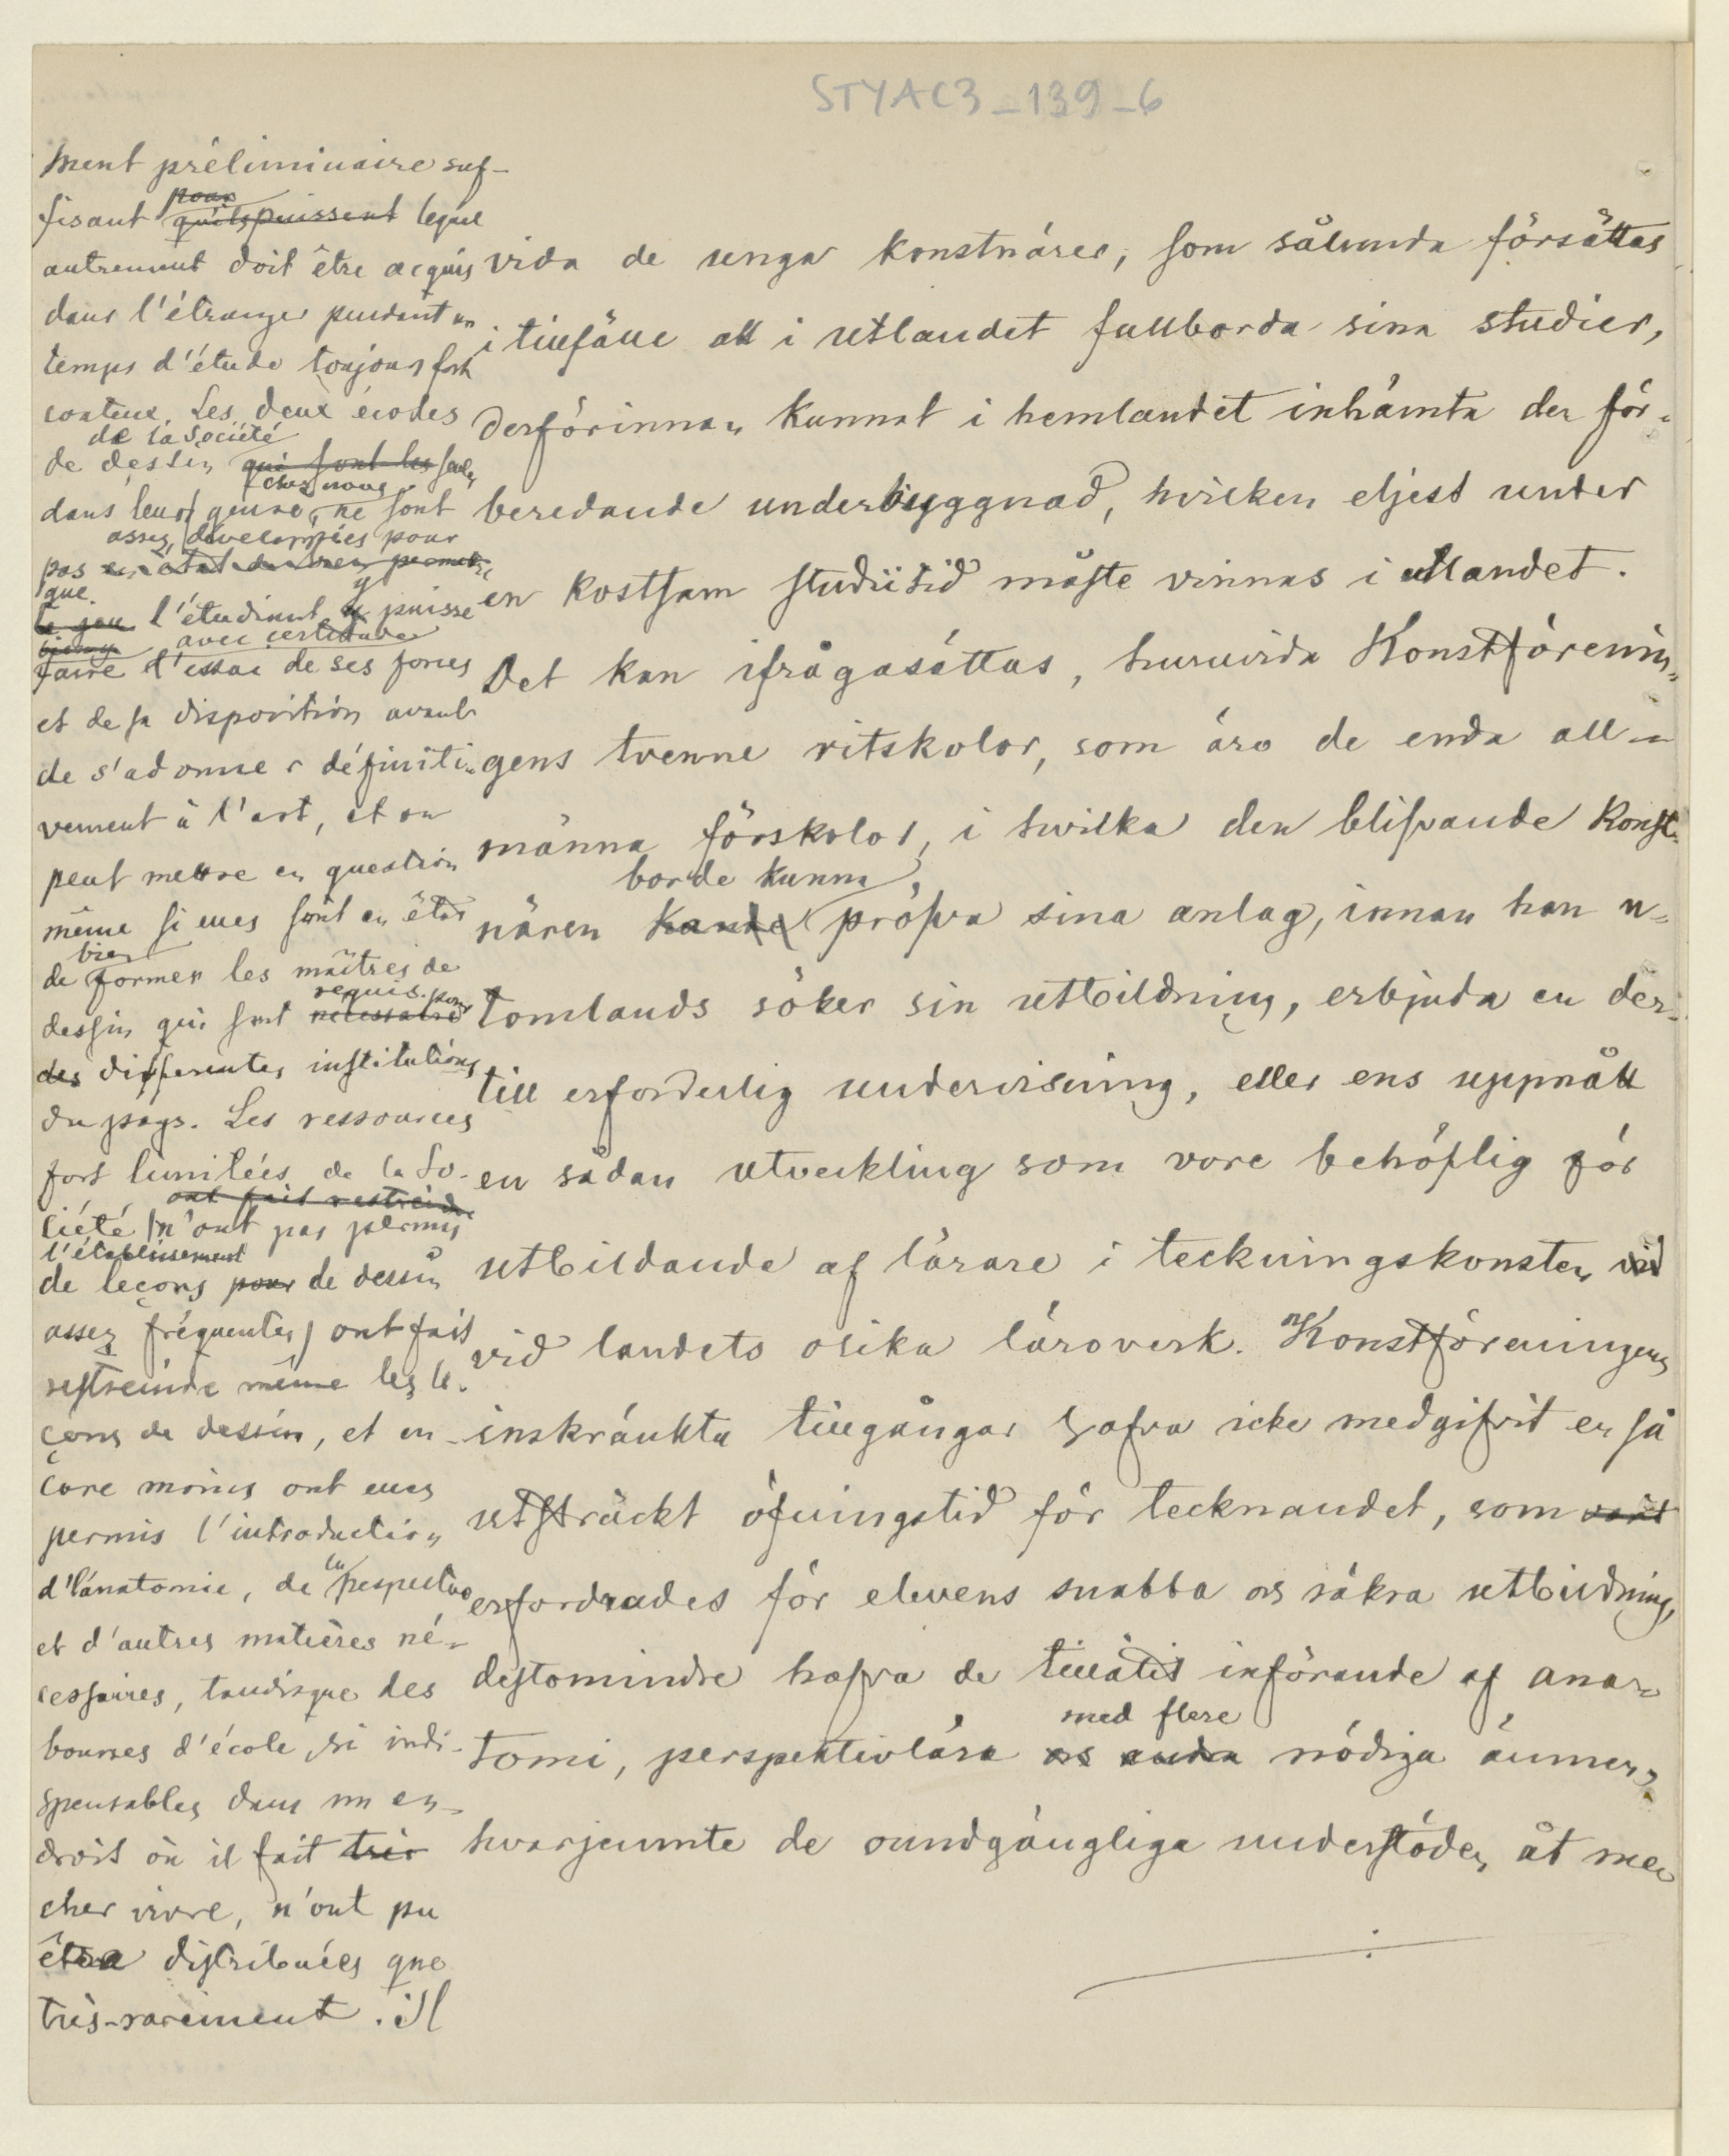 STYAC3_139_6
ment préliminaire suf-
fisant pour qu'ils puissent lequel
autrement doit être acquis
dans l'étranger pendant un
temps d'étude toujours fort
couteux. Les deux écoles
de la Société
de dessin qui sont les seules
chez nous
dans leur genre, ne sont
assez développées pour
pas en état de
que l'étudiant y puisse
avec certitude
faire l'essai de ses forces
et de sa disposition avant
de s'adonner définiti-
vement à l'art, et on
peut mettre en question
même si elles sont en état
bien
de former les maîtres de
requis pour
dessin qui sont nécessaires
des differentes institutions
du pays. Les ressources
fort limitées de la So-
ont fait restreindre
ciété n'ont pas permis
l'établissement
de leçons pour de dessin
assez fréquentes ont fait
restreindre même les le-
çons de dessin, et en-
core moins ont elles
permis l'introduction
d'anatomie, de la perspective
et d'autres matières né-
cessaires, tandisque des
bourses d'école si indi-
spensables dans un en-
droit où il fait très
cher vivre, n'ont pu
être distribuées que
très-rarement. Il
vida de unga konstnärer, som sålunda försättas
i tillfälle att i utlandet fullborda sina studier,
derförinnan kunnat i hemlandet inhämta den för-
beredande underbyggnad, hvilken eljest under
en kostsam studiitid måste vinnas i utlandet.
Det kan ifrågasättas, huruvida Konstförenin-
gens tvenne ritskolor, som äro de enda all-
männa förskolor, i hvilka den blifvande konst-
borde kunna
nären kande pröfva sina anlag, innan han u-
tomlands söker sin utbildning, erbjuda en der-
till erforderlig undervisning, eller ens uppnått
en sådan utveckling som vore behöflig för
utbildande af lärare i teckningskonsten vid
vid landets olika läroverk. Konstföreningens
inskränkta tillgångar hafva icke medgifvit en så
utsträckt öfningstid för tecknandet, som varit
erfordrades för elevens snabba och säkra utbildning,
destomindre hafva de tillåtit införande af ana-
med flere
tomi, perspektivlära och andra nödiga ämnen,
hvarjemnte de oundgängliga understöden åt me-